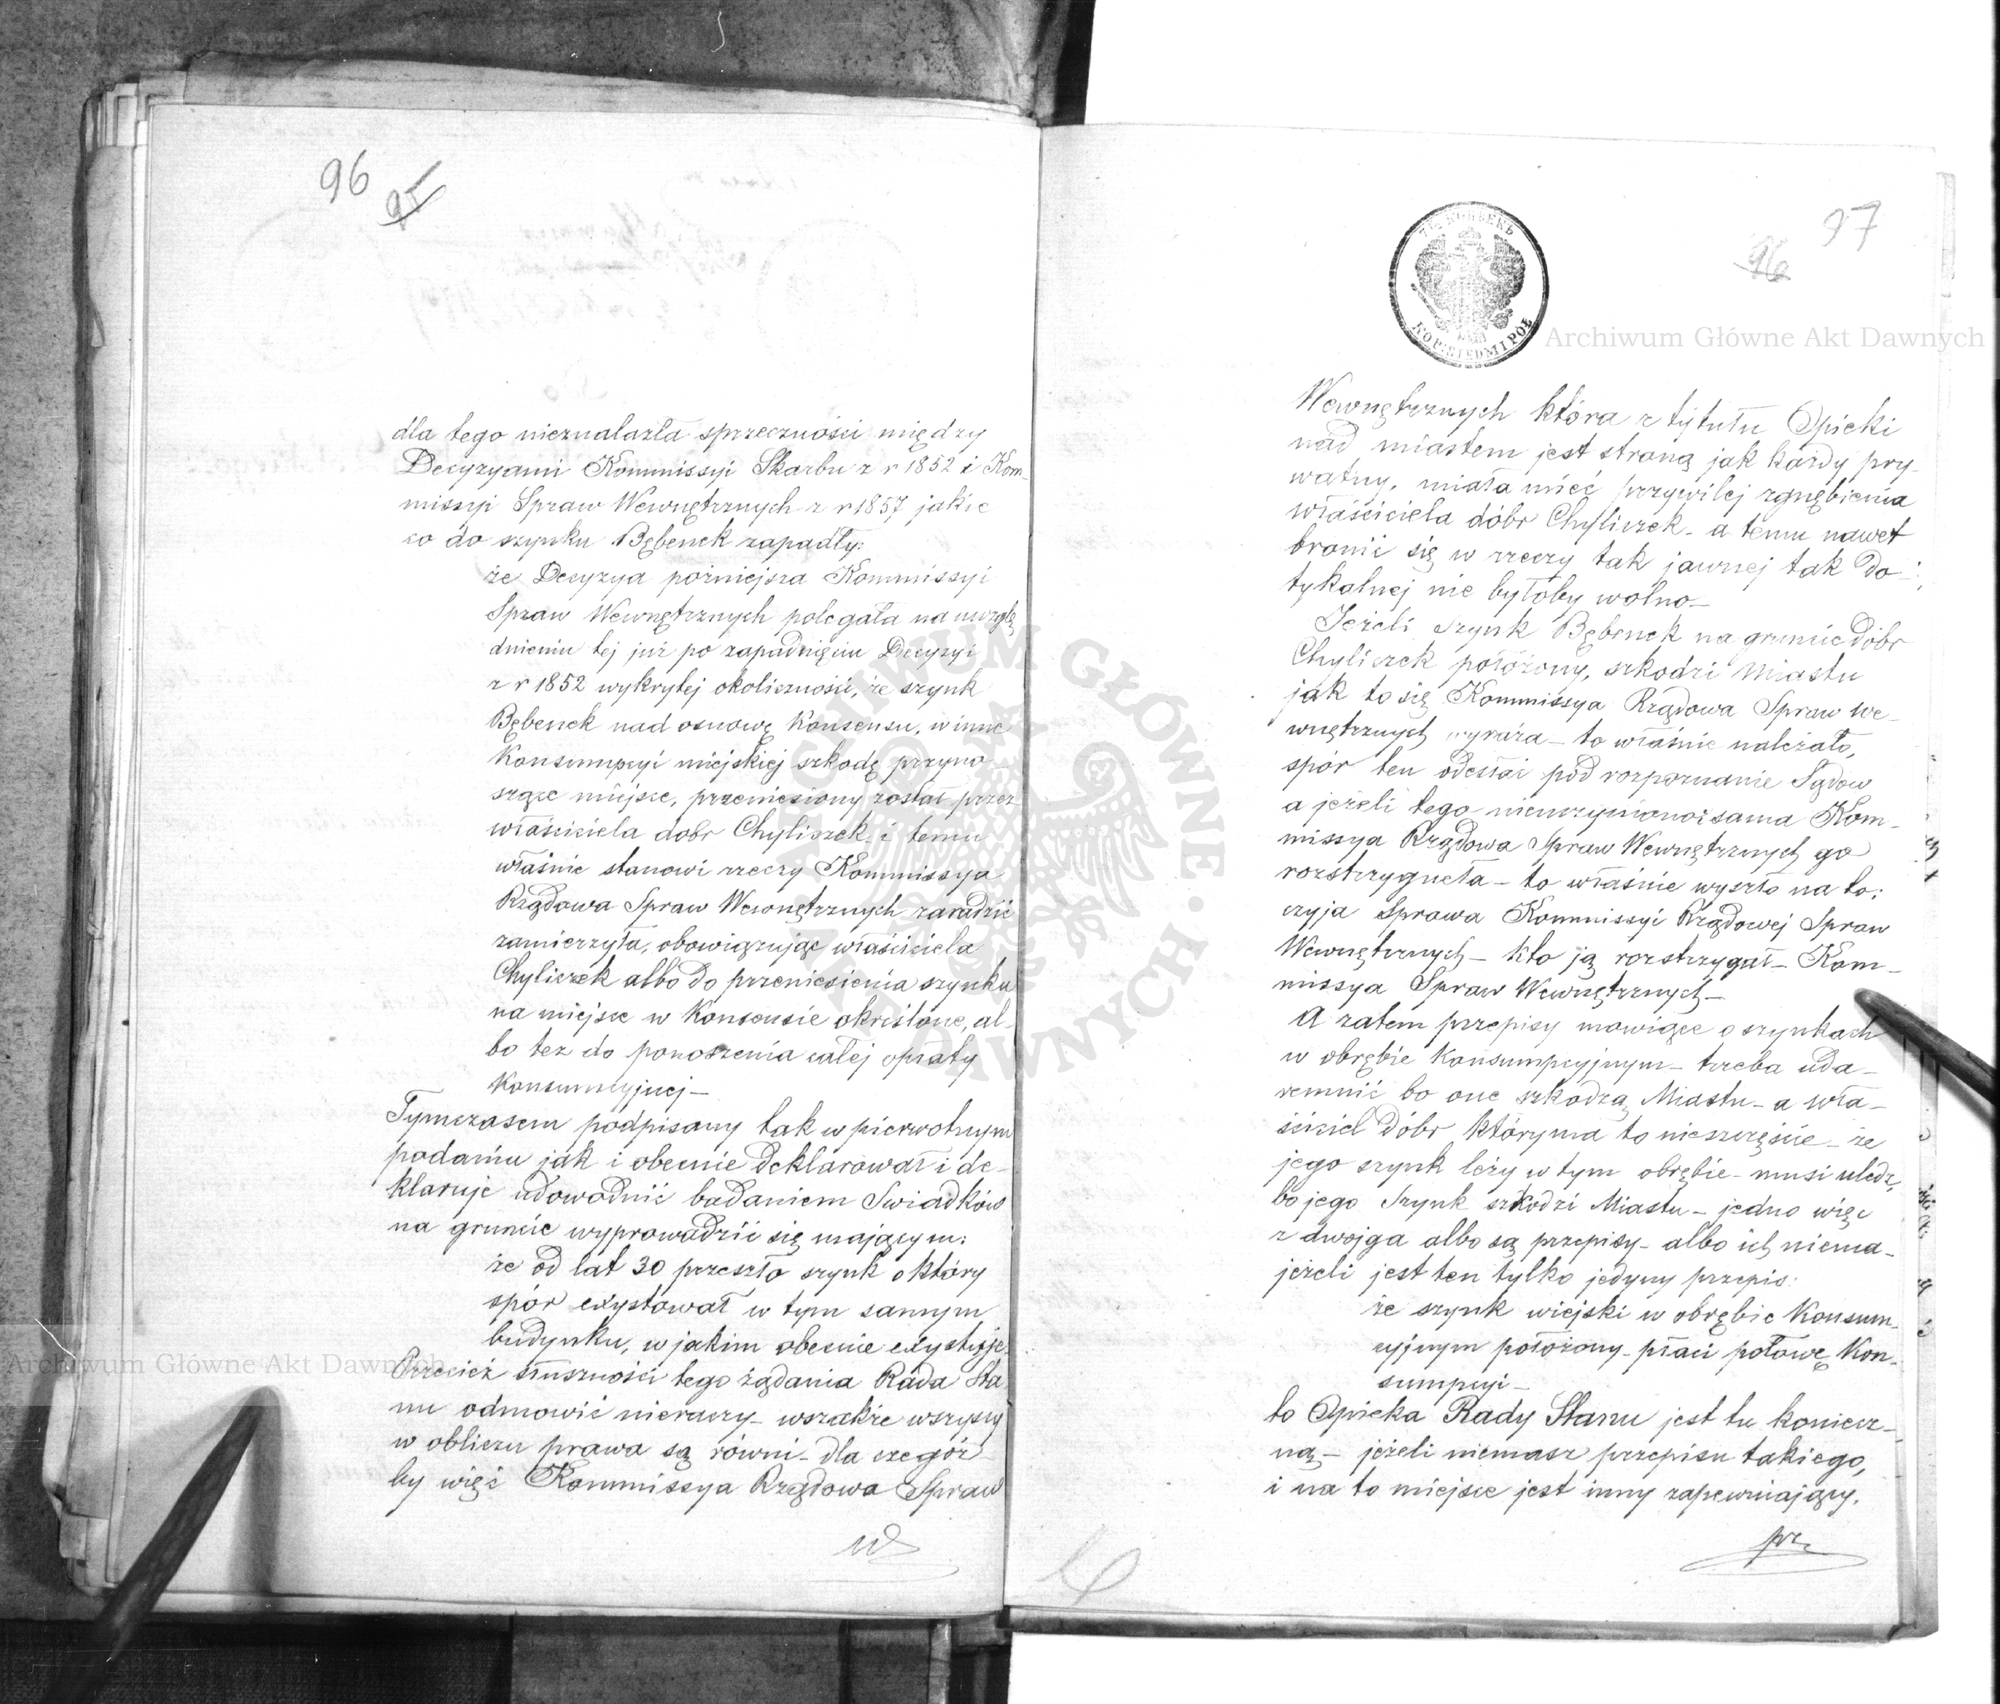 96
95
dla tego nieznalazła sprzeczności między
Decyzyami Kommissyi Skarbu z r 1852 i Kom-
missyi Spraw Wewnętrznych z r 1857 jakie
co do szynku Bębenek zapadły:
że Decyzya poźniejsza Kommissyi
Spraw Wewnętrznych polegała na uwzglę
dnieniu tej już po zapadnięciu Decyzyi
z r 1852 wykrytej okoliczności, że szynk
Bębenek nad osnowę Konsensu, w inne
Konsumpcyi miejskiej szkodę przyno-
szące miejsce, przeniesiony został przez
właściciela dobr Chyliczek i temu
właśnie stanowi rzeczy Kommissya
Rządowa Spraw Wewnętrznych zaradzić
zamierzyła, obowiązując właściciela
Chyliczek albo do przeniesienia szynku
na miejsce w Konsensie okriślone, al-
bo też do ponoszenia całej opłaty
Konsumcyjnej_
Tymczasem podpisany tak w pierwotnym
podaniu jak i obecnie deklarował i de-
klaruje udowodnić badaniem Swiadków
na gruncie wyprowadzić się mającym:
że od lat 30 przeszło szynk o który
spór exystował w tym samym
budynku, w jakim obecnie exystuje.
Przecież słuszności tego żądania Rada Sta
nu odmowić nieraczy_ wszakże wszyscy
w obliczu prawa są równi_ dla czegóż
by więc Kommissya Rządowa Spraw
97
96
75 КОПѢЕКЪ
KOP. SIEDM I PÓŁ
Archiwum Główne Akt Dawnych
Wewnętrznych która z tytułu Opieki
nad miastem jest stroną jak każdy pry-
watny, miała mieć przywilej zgnębienia
właściciela dóbr Chyliczek_ a temu nawet
bronić się w rzeczy tak jawnej tak do-
tykalnej nie byłoby wolno_
Jeżeli szynk Bębenek na gruncie dóbr
Chyliczek położony, szkodzi Miastu
jak to się Kommissya Rządowa Spraw We-
wnętrznych wyraża_ to właśnie należało,
spór ten odesłać pod rozpoznanie Sądow
a jeżeli tego nieuczyniono i sama Kom-
missya Rządowa Spraw Wewnętrznych go
rozstrzygneła_ to właśnie wyszło na to:
czyja sprawa Kommissyi Rządowej Spraw
Wewnętrznych_ kto ją rozstrzygał_ Kom-
missya Spraw Wewnętrznych_
A zatem przepisy mowiące o szynkach
w obrębie Konsumpcyjnym_ trzeba uda-
remnić bo one szkodzą Miastu_ a wła-
ściciel Dóbr który ma to nieszczęście_ że
jego szynk leży w tym obrębie_ musi uledz,
bo jego Szynk szkodzi Miastu_ jedno więc
z dwojga albo są przepisy_ albo ich niema_
jeżeli jest ten tylko jedyny przepis:
że szynk wiejski w obrębie Konsum-
cyjnym położony_ płaci połowę Kon-
sumpcyi_
to Opieka Rady Stanu jest tu koniecz-
ną_ jeżeli niemasz przepisu takiego,
i na to miejsce jest inny zapewniający,
Archiwum Główne Akt Dawnych
ARCHIWUM GŁÓWNE AKT DAWNYCH